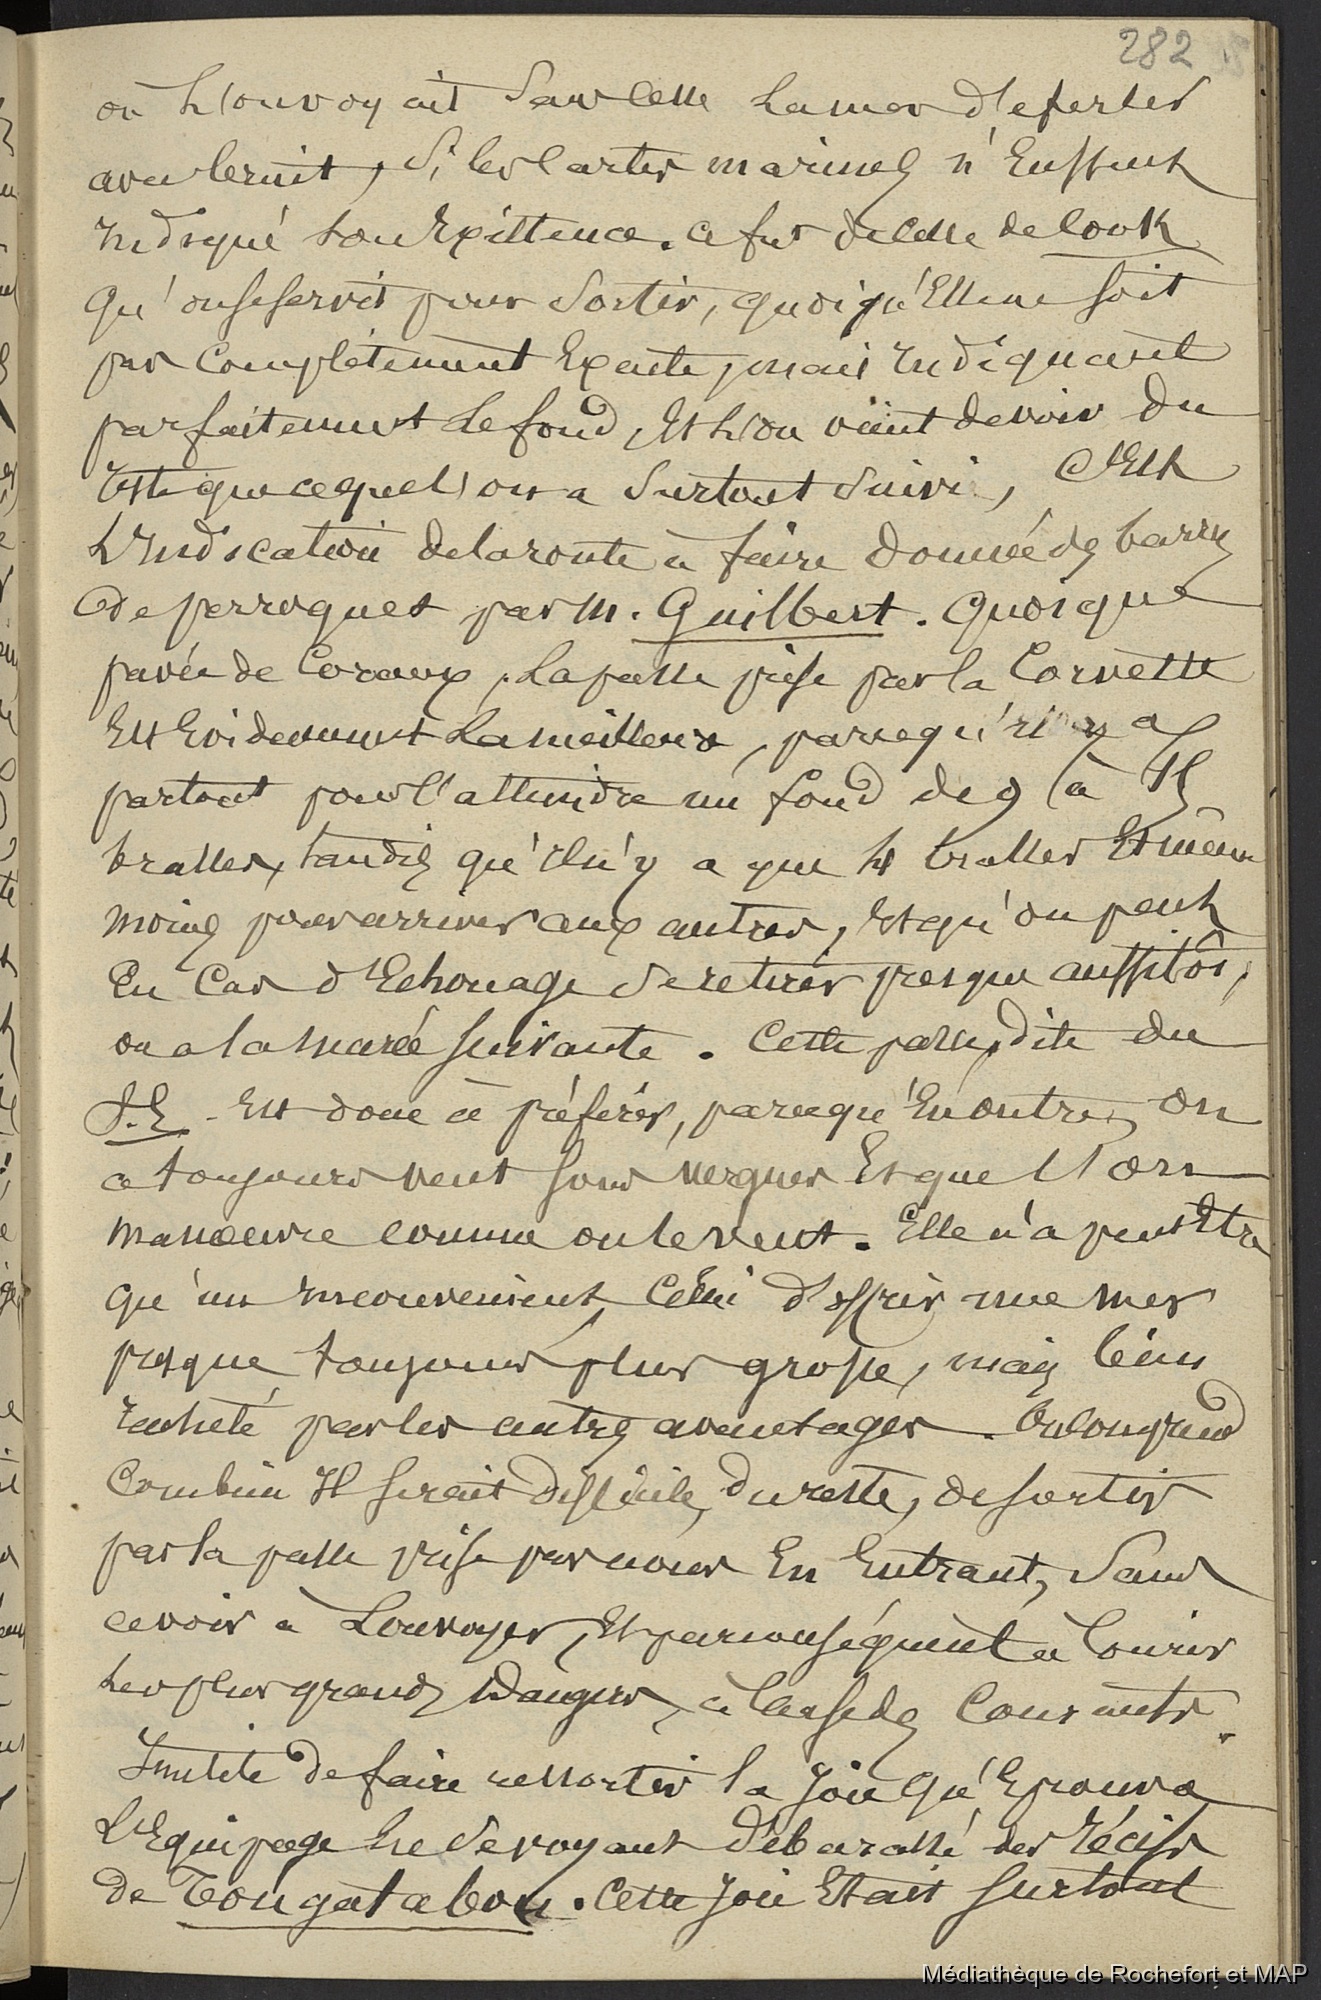 282
où l'on voyait sans cesse la mer déferler
avec bruit, si les cartes marines n'eussent
indiqué son existence. Ce fut de celle de Cook
qu'on se servit pour sortir, quoiqu'elle ne soit
pas complètement exacte, mais indiquant
parfaitement le fond, et l'on vient de voir du
reste que ce que l'on a surtout suivi, c'est
l'indication de la route à faire donnée des barres
de perroquet par M. Guilbert. Quoique
pavée de coraux, la passe prise par la corvette
est évidemment la meilleure, parcequ'il y a
partout pour l'atteindre un fond de 9 à
brasses, tandis qu'il n'y a que 4 brasses et même
moins pour arriver aux autres, et qu'on peut
en cas d'échouage se retirer presque aussitôt,
ou a la marée suivante. Cette passe, dite du
S.E. est donc à préférer, parcequ'en outre, on
a toujours vent sous vergues et que l'on
manoeuvre comme on le veut. Elle n'a peut être
qu'un inconvénient, celui d'offrir une mer
presque toujours plus grosse, mais bien
racheté par les autres avantages. On comprend
combien il serait difficile, du reste, de sortir
par la passe prise par nous en entrant, sans
avoir à louvoyer, et par conséquent à courir
les plus grands dangers, à cause des courants.
Inutile de faire ressortir la joie qu'éprouva
l'équipage en se voyant débarassé des récifs
de Tongatabou. Cette joie était surtout
Médiathèque de Rochefort et MAP